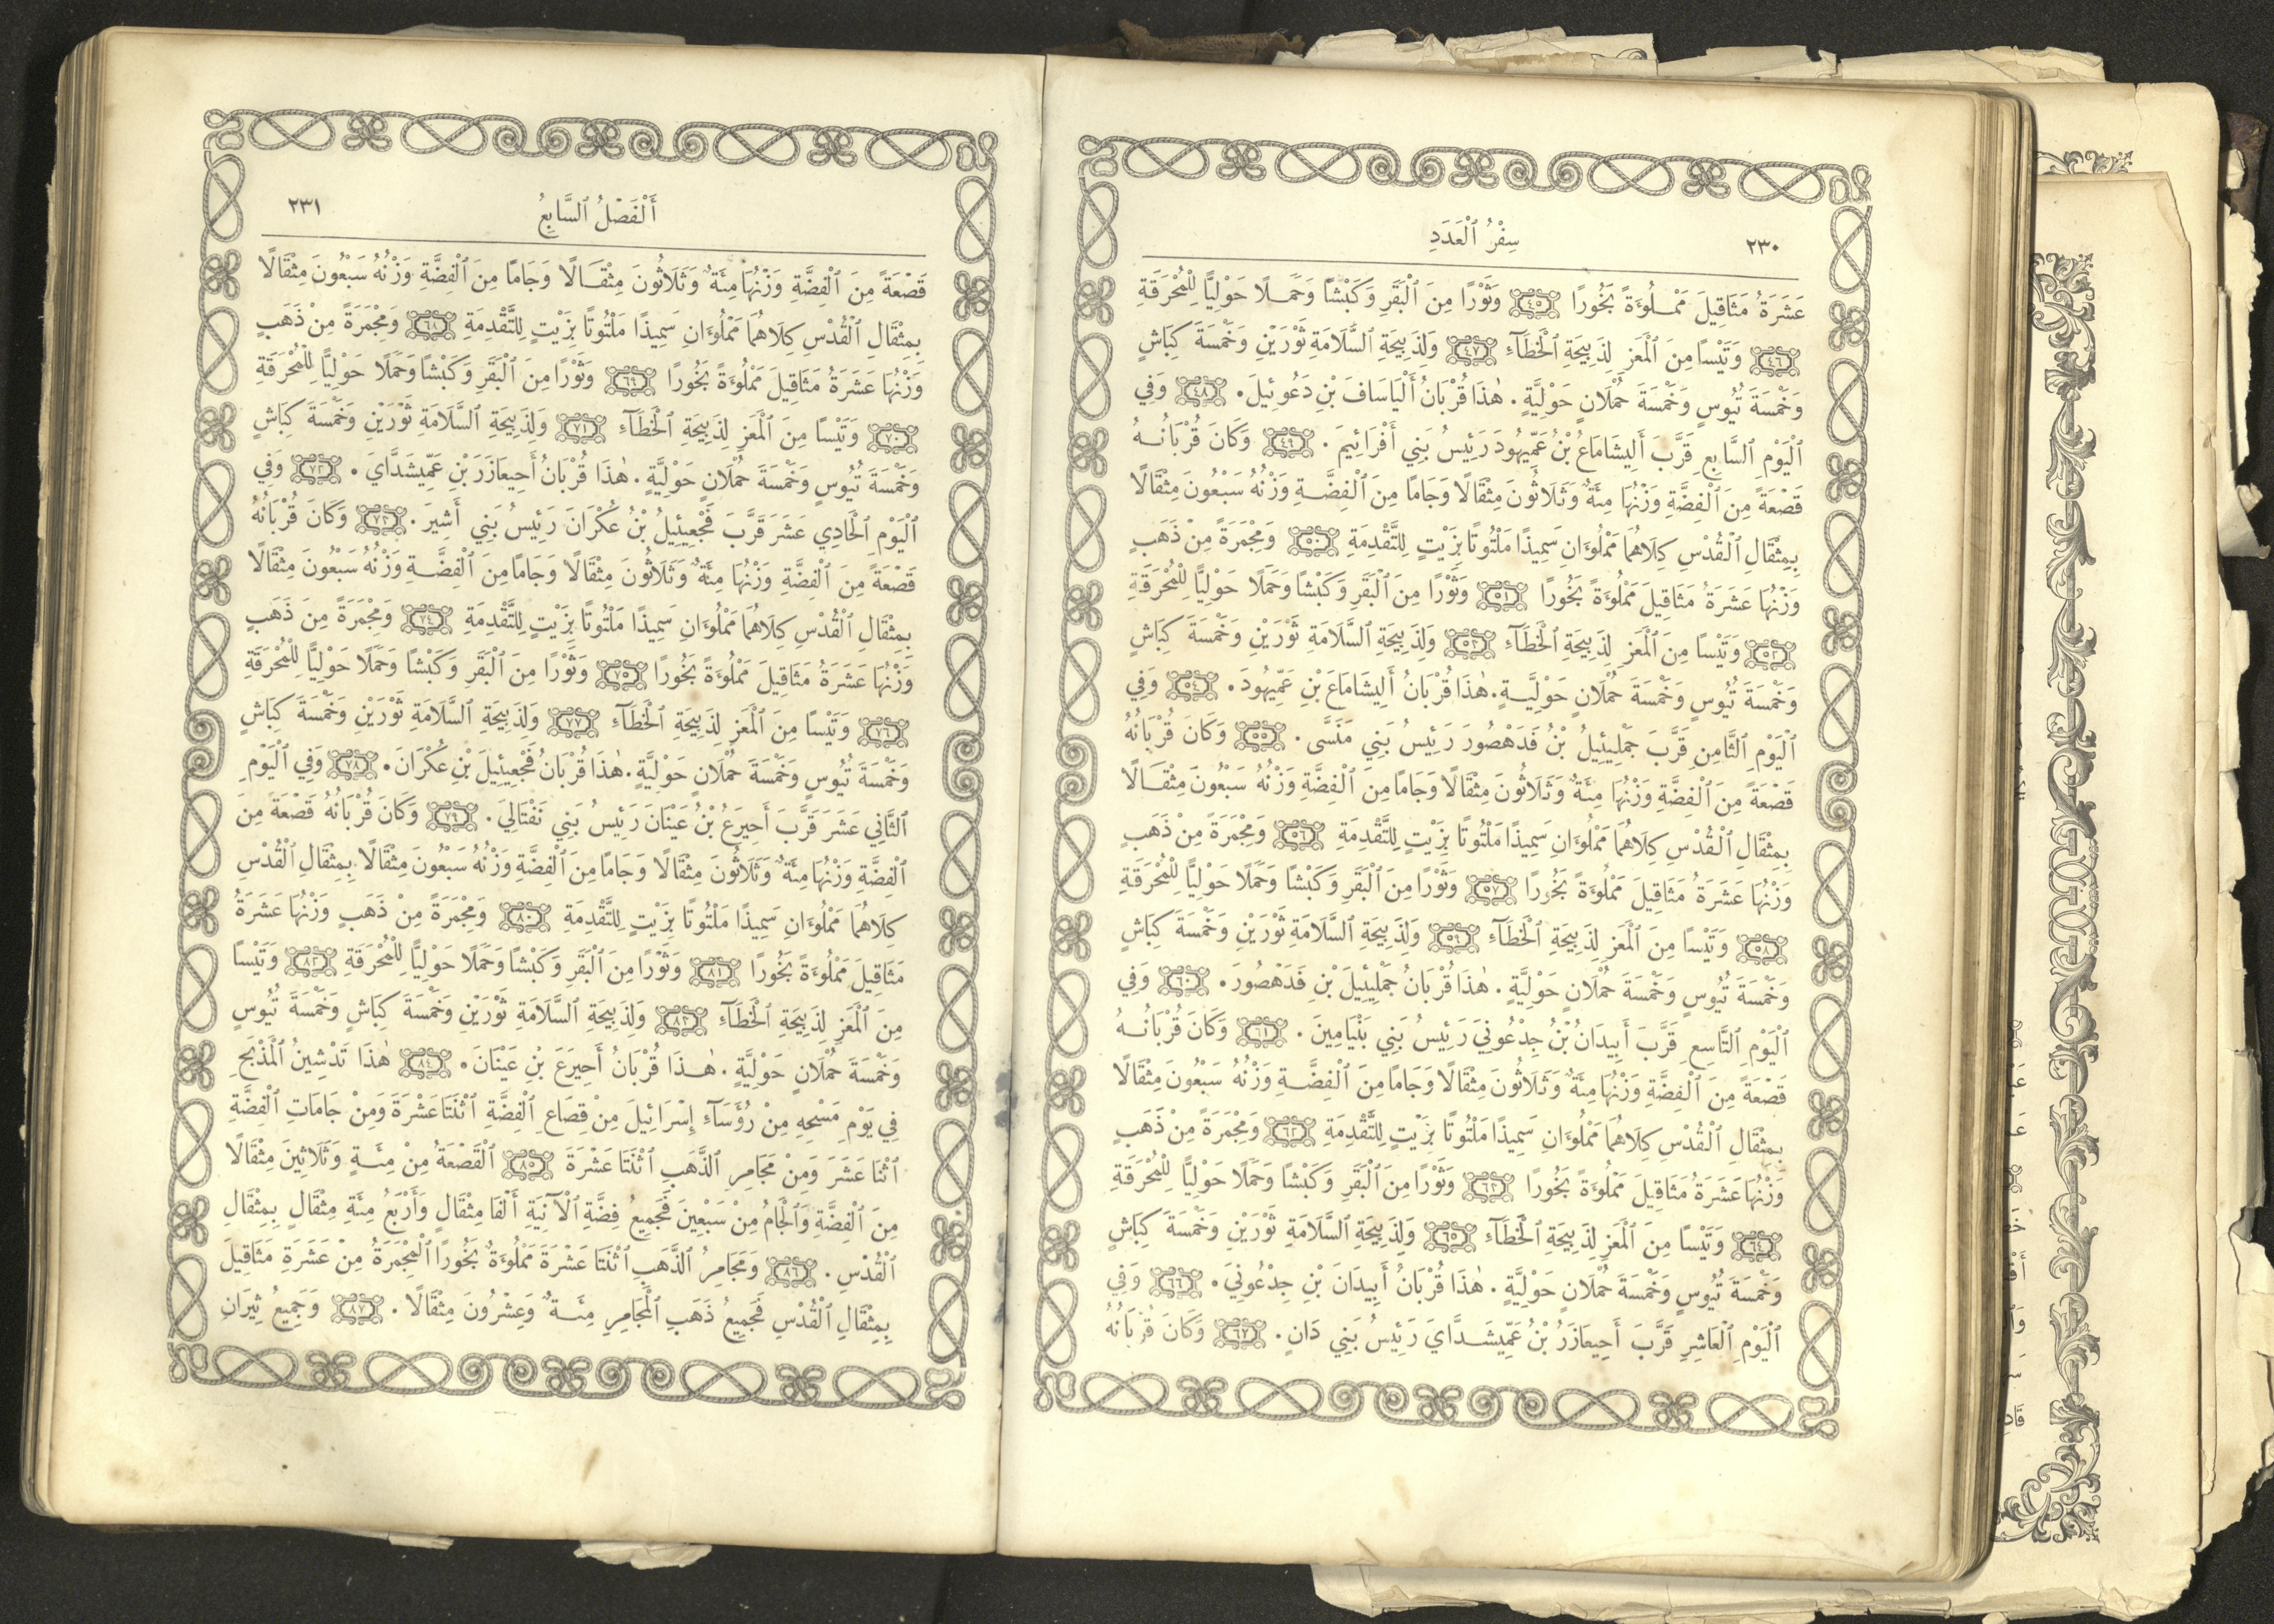 ٢٣٠
سِفْرُ ٱلْعَدَدِ
عَشَرَةُ مَثَاقِيلَ مَمْلُوءَةً بَخُورًا ٤٥ وَثَوْرًا مِنَ ٱلْبَقَرِ وَكَبْشًا وَحَمَلًا حَوْلِيًّا لِلْمُحْرَقَةِ
٤٦ وَتَيْسًا مِنَ ٱلْمَعَزِ لِذَبِيحَةِ ٱلْخَطَآءِ ٤٧ وَلِذَبِيحَةِ ٱلسَّلَامَةِ ثَوْرَيْنِ وَخَمْسَةَ كِبَاشٍ
وَخَمْسَةَ تُيُوسٍ وَخَمْسَةَ حُمْلَانٍ حَوْلِيَّةٍ. هٰذَا قُرْبَانُ أَلْيَاسَافَ بْنِ دَعُوئِيلَ. ٤٨ وَفِي
ٱلْيَوْمِ ٱلسَّابِعِ قَرَّبَ أَلِيشَامَاعُ بْنُ عَمِّيهُودَ رَئِيسُ بَنِي أَفْرَائِيمَ. ٤٩ وَكَانَ قُرْبَانُهُ
قَصْعَةً مِنَ ٱلْفِضَّةِ وَزْنُهَا مِئَةٌ وَثَلَاثُونَ مِثْقَالًا وَجَامًا مِنَ ٱلْفِضَّةِ وَزْنُهُ سَبْعُونَ مِثْقَالًا
بِمِثْقَالِ ٱلْقُدْسِ كِلَاهُمَا مَمْلُوءَانِ سَمِيذًا مَلْتُوتًا بِزَيْتٍ لِلتَّقْدِمَةِ ٥٠ وَمِجْمَرَةً مِنْ ذَهَبٍ
وَزْنُهَا عَشَرَةُ مَثَاقِيلَ مَمْلُوءَةً بَخُورًا ٥١ وَثَوْرًا مِنَ ٱلْبَقَرِ وَكَبْشًا وَحَمَلًا حَوْلِيًّا لِلْمُحْرَقَةِ
٥٢ وَتَيْسًا مِنَ ٱلْمَعَزِ لِذَبِيحَةِ ٱلْخَطَآءِ ٥٣ وَلِذَبِيحَةِ ٱلسَّلَامَةِ ثَوْرَيْنِ وَخَمْسَةَ كِبَاشٍ
وَخَمْسَةَ تُيُوسٍ وَخَمْسَةَ حُمْلَانٍ حَوْلِيَّةٍ. هٰذَا قُرْبَانُ أَلِيشَامَاعَ بْنِ عَمِّيهُودَ. ٥٤ وَفِي
ٱلْيَوْمِ ٱلثَّامِنِ قَرَّبَ جَمْلِيئِيلُ بْنُ فَدَهْصُورَ رَئِيسُ بَنِي مَنَسَّى. ٥٥ وَكَانَ قُرْبَانُهُ
قَصْعَةً مِنَ ٱلْفِضَّةِ وَزْنُهَا مِئَةٌ وَثَلَاثُونَ مِثْقَالًا وَجَامًا مِنَ ٱلْفِضَّةِ وَزْنُهُ سَبْعُونَ مِثْقَالًا
بِمِثْقَالِ ٱلْقُدْسِ كِلَاهُمَا مَمْلُوءَانِ سَمِيذًا مَلْتُوتًا بِزَيْتٍ لِلتَّقْدِمَةِ ٥٦ وَمِجْمَرَةً مِنْ ذَهَبٍ
وَزْنُهَا عَشَرَةُ مَثَاقِيلَ مَمْلُوءَةً بَخُورًا ٥٧ وَثَوْرًا مِنَ ٱلْبَقَرِ وَكَبْشًا وَحَمَلًا حَوْلِيًّا لِلْمُحْرَقَةِ
٥٨ وَتَيْسًا مِنَ ٱلْمَعَزِ لِذَبِيحَةِ ٱلْخَطَآءِ ٥٩ وَلِذَبِيحَةِ ٱلسَّلَامَةِ ثَوْرَيْنِ وَخَمْسَةَ كِبَاشٍ
وَخَمْسَةَ تُيُوسٍ وَخَمْسَةَ حُمْلَانٍ حَوْلِيَّةٍ. هٰذَا قُرْبَانُ جَمْلِيئِيلَ بْنِ فَدَهْصُورَ. ٦٠ وَفِي
ٱلْيَوْمِ ٱلتَّاسِعِ قَرَّبَ أَبِيدَانُ بْنُ جِدْعُونِيَ رَئِيسُ بَنِي بَنْيَامِينَ. ٦١ وَكَانَ قُرْبَانُهُ
قَصْعَةً مِنَ ٱلْفِضَّةِ وَزْنُهَا مِئَةٌ وَثَلَاثُونَ مِثْقَالًا وَجَامًا مِنَ ٱلْفِضَّةِ وَزْنُهُ سَبْعُونَ مِثْقَالًا
بِمِثْقَالِ ٱلْقُدْسِ كِلَاهُمَا مَمْلُوءَانِ سَمِيذًا مَلْتُوتًا بِزَيْتٍ لِلتَّقْدِمَةِ ٦٢ وَمِجْمَرَةً مِنْ ذَهَبٍ
وَزْنُهَا عَشَرَةُ مَثَاقِيلَ مَمْلُوءَةً بَخُورًا ٦٣ وَثَوْرًا مِنَ ٱلْبَقَرِ وَكَبْشًا وَحَمَلًا حَوْلِيًّا لِلْمُحْرَقَةِ
٦٤ وَتَيْسًا مِنَ ٱلْمَعَزِ لِذَبِيحَةِ ٱلْخَطَآءِ ٦٥ وَلِذَبِيحَةِ ٱلسَّلَامَةِ ثَوْرَيْنِ وَخَمْسَةَ كِبَاشٍ
وَخَمْسَةَ تُيُوسٍ وَخَمْسَةَ حُمْلَانٍ حَوْلِيَّةٍ. هٰذَا قُرْبَانُ أَبِيدَانَ بْنِ جِدْعُونِيَ. ٦٦ وَفِي
ٱلْيَوْمِ ٱلْعَاشِرِ قَرَّبَ أَحِيعَازَرُ بْنُ عَمِّيشَدَّايَ رَئِيسُ بَنِي دَانٍ. ٦٧ وَكَانَ قُرْبَانُهُ
أَلْفَصْلُ ٱلسَّابِعُ
٢٣١
قَصْعَةً مِنَ ٱلْفِضَّةِ وَزْنُهَا مِئَةٌ وَثَلَاثُونَ مِثْقَالًا وَجَامًا مِنَ ٱلْفِضَّةِ وَزْنُهُ سَبْعُونَ مِثْقَالًا
بِمِثْقَالِ ٱلْقُدْسِ كِلَاهُمَا مَمْلُوءَانِ سَمِيذًا مَلْتُوتًا بِزَيْتٍ لِلتَّقْدِمَةِ ٦٨ وَمِجْمَرَةً مِنْ ذَهَبٍ
وَزْنُهَا عَشَرَةُ مَثَاقِيلَ مَمْلُوءَةً بَخُورًا ٦٩ وَثَوْرًا مِنَ ٱلْبَقَرِ وَكَبْشًا وَحَمَلًا حَوْلِيًّا لِلْمُحْرَقَةِ
٧٠ وَتَيْسًا مِنَ ٱلْمَعَزِ لِذَبِيحَةِ ٱلْخَطَآءِ ٧١ وَلِذَبِيحَةِ ٱلسَّلَامَةِ ثَوْرَيْنِ وَخَمْسَةَ كِبَاشٍ
وَخَمْسَةَ تُيُوسٍ وَخَمْسَةَ حُمْلَانٍ حَوْلِيَّةٍ. هٰذَا قُرْبَانُ أَحِيعَازَرَ بْنِ عَمِّيشَدَّايَ. ٧٢ وَفِي
ٱلْيَوْمِ ٱلْحَادِي عَشَرَ قَرَّبَ فَجْعِيئِيلُ بْنُ عُكْرَانَ رَئِيسُ بَنِي أَشِيرَ. ٧٣ وَكَانَ قُرْبَانُهُ
قَصْعَةً مِنَ ٱلْفِضَّةِ وَزْنُهَا مِئَةٌ وَثَلَاثُونَ مِثْقَالًا وَجَامًا مِنَ ٱلْفِضَّةِ وَزْنُهُ سَبْعُونَ مِثْقَالًا
بِمِثْقَالِ ٱلْقُدْسِ كِلَاهُمَا مَمْلُوءَانِ سَمِيذًا مَلْتُوتًا بِزَيْتٍ لِلتَّقْدِمَةِ ٧٤ وَمِجْمَرَةً مِنَ ذَهَبٍ
وَزْنُهَا عَشَرَةُ مَثَاقِيلَ مَمْلُوءَةً بَخُورًا ٧٥ وَثَوْرًا مِنَ ٱلْبَقَرِ وَكَبْشًا وَحَمَلًا حَوْلِيًّا لِلْمُحْرَقَةِ
٧٦ وَتَيْسًا مِنَ ٱلْمَعَزِ لِذَبِيحَةِ ٱلْخَطَآءِ ٧٧ وَلِذَبِيحَةِ ٱلسَّلَامَةِ ثَوْرَيْنِ وَخَمْسَةَ كِبَاشٍ
وَخَمْسَةَ تُيُوسٍ وَخَمْسَةَ حُمْلَانٍ حَوْلِيَّةٍ. هٰذَا قُرْبَانُ فَجْعِيئِيلَ بْنِ عُكْرَانَ. ٧٨ وَفِي ٱلْيَوْمِ
ٱلثَّانِي عَشَرَ قَرَّبَ أَحِيرَعُ بْنُ عَيْنَانَ رَئِيسُ بَنِي نَفْتَالِيَ. ٧٩ وَكَانَ قُرْبَانُهُ قَصْعَةً مِنَ
ٱلْفِضَّةِ وَزْنُهَا مِئَةٌ وَثَلَاثُونَ مِثْقَالًا وَجَامًا مِنَ ٱلْفِضَّةِ وَزْنُهُ سَبْعُونَ مِثْقَالًا بِمِثْقَالِ ٱلْقُدْسِ
كِلَاهُمَا مَمْلُوءَانِ سَمِيذًا مَلْتُوتًا بِزَيْتٍ لِلتَّقْدِمَةِ ٨٠ وَمِجْمَرَةً مِنْ ذَهَبٍ وَزْنُهَا عَشَرَةُ
مَثَاقِيلَ مَمْلُوءَةً بَخُورًا ٨١ وَثَوْرًا مِنَ ٱلْبَقَرِ وَكَبْشًا وَحَمَلًا حَوْلِيًّا لِلْمُحْرَقَةِ ٨٢ وَتَيْسًا
مِنَ ٱلْمَعَزِ لِذَبِيحَةِ ٱلْخَطَآءِ ٨٣ وَلِذَبِيحَةِ ٱلسَّلَامَةِ ثَوْرَيْنِ وَخَمْسَةَ كِبَاشٍ وَخَمْسَةَ تُيُوسٍ
وَخَمْسَةَ حُمْلَانٍ حَوْلِيَّةٍ. هٰذَا قُرْبَانُ أَحِيرَعَ بْنِ عَيْنَانَ. ٨٤ هٰذَا تَدْشِينُ ٱلْمَذْبَحِ
فِي يَوْمِ مَسْحِهِ مِنْ رُؤَسَآءِ إِسْرَائِيلَ مِنْ قِصَاعِ ٱلْفِضَّةِ ٱثْنَتَا عَشْرَةَ وَمِنْ جَامَاتِ ٱلْفِضَّةِ
ٱثْنَا عَشَرَ وَمِنْ مَجَامِرِ ٱلذَّهَبِ ٱثْنَتَا عَشْرَةَ ٨٥ ٱلْقَصْعَةُ مِنْ مِئَةٍ وَثَلَاثِينَ مِثْقَالًا
مِنَ ٱلْفِضَّةِ وَٱلْجَامُ مِنْ سَبْعِينَ فَجَمِيعُ فِضَّةِ ٱلْآنِيَةِ أَلْفَا مِثْقَالٍ وَأَرْبَعُ مِئَةِ مِثْقَالٍ بِمِثْقَالِ
ٱلْقُدْسِ. ٨٦ وَمَجَامِرُ ٱلذَّهَبِ ٱثْنَتَا عَشْرَةَ مَمْلُوءَةٌ بَخُورًا ٱلْمِجْمَرَةُ مِنْ عَشَرَةِ مَثَاقِيلَ
بِمِثْقَالِ ٱلْقُدْسِ فَجَمِيعُ ذَهَبِ ٱلْمَجَامِرِ مِئَةٌ وَعِشْرُونَ مِثْقَالًا. ٨٧ وَجَمِيعُ ثِيرَانِ